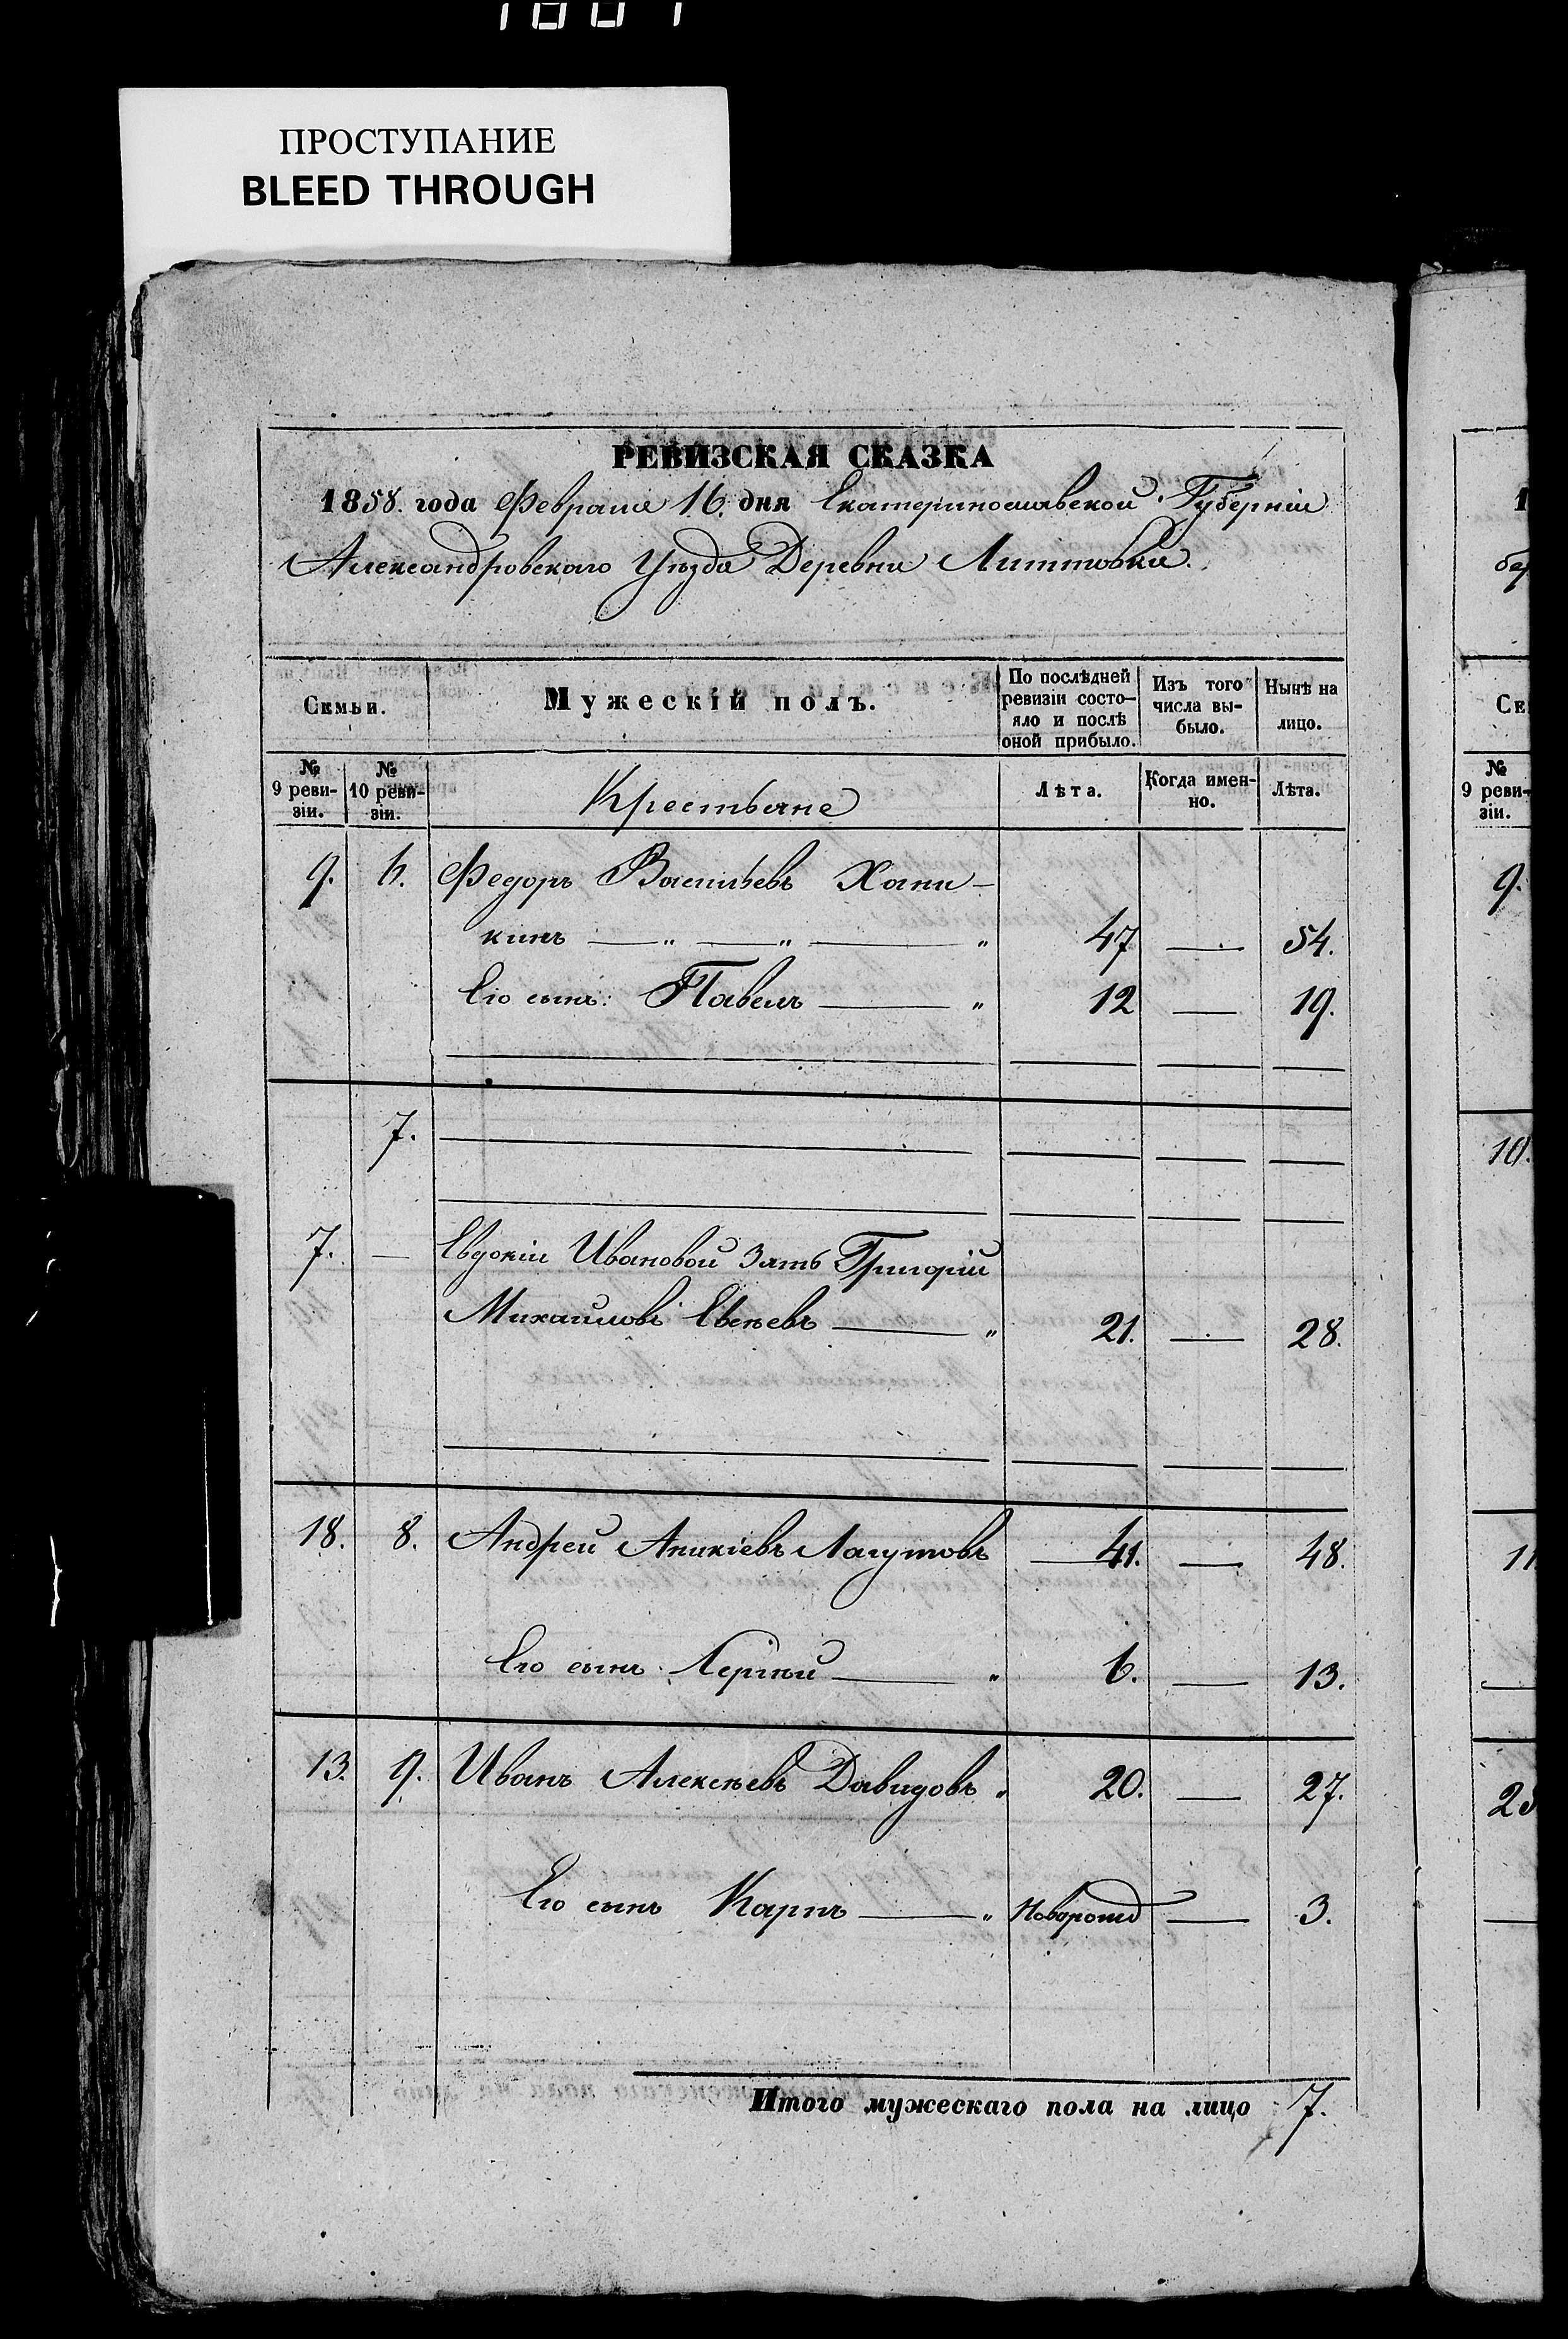 ПРОСТУПАНИЕ
BLEED THROUGH
РЕВИЗСКАЯ СКАЗКА
1858. года Февраля 16. дня Екатеринославской Губерніи
Александровскаго Уѣзда Деревни
Семьи. Мужескій полъ. По послѣдней ревизіи состояло и послѣ оной прибыло. Изъ того числа выбыло. Нынѣ на лицо.
№ 9 ревизіи. № 10 ревизіи. Крестьяне Лѣта. Когда именно. Лѣта.
9. 6. Федоръ Васильевъ Хани-
кинъ — „ — „ — „ 47 — 54.
Его сынъ: Павелъ — „ 12 — 19.
7.
7. — Евдокіи Ивановой Зять Григорій
Михайловъ Евсѣевъ — „ 21. — 28.
18. 8. Андрей Аникіевъ Лагутовъ — 41. — 48.
Его сынъ: Сергѣй — „ 6. — 13.
13. 9. Иванъ Алексѣевъ Давидовъ „ 20. — 27.
Его сынъ Карпъ — „ Поворожд — 3.
Итого мужескаго пола на лицо 7.
1
бер
Се
№
9 реви-
зіи.
9.
10.
11